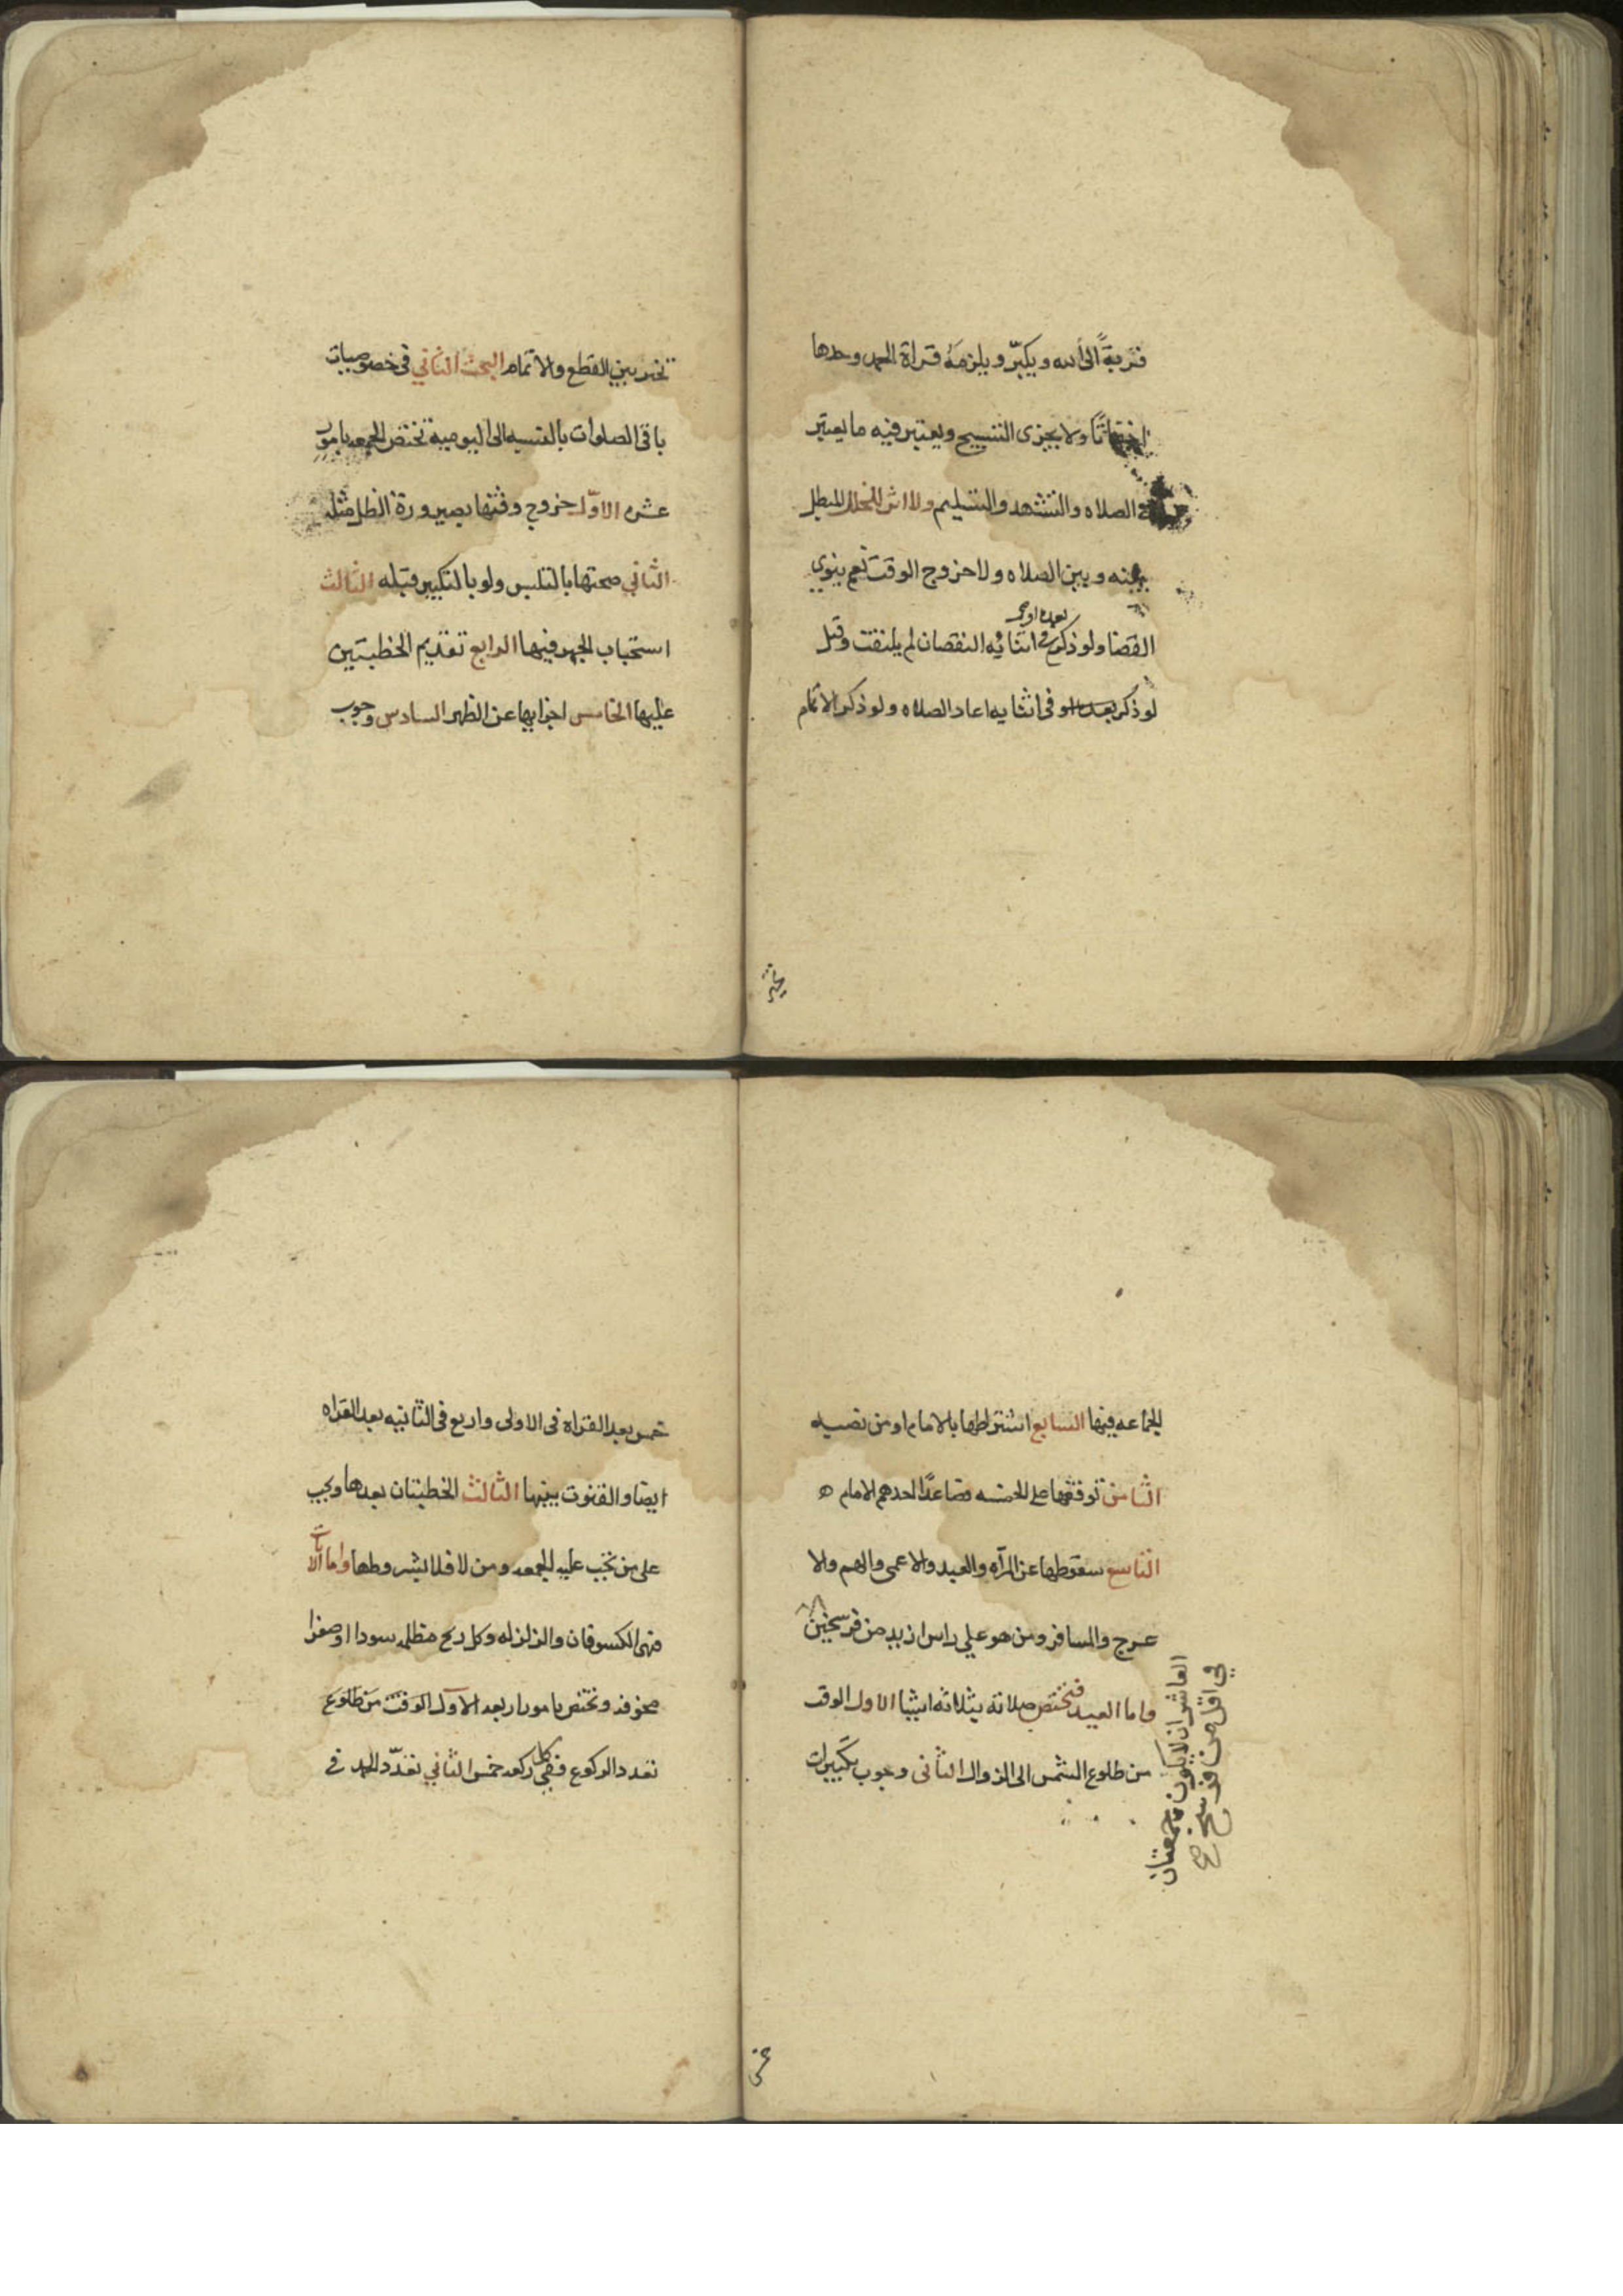 قربةً الى الله ويكبّر ويلزمه قراة الحمد وحدها
اخفاتًا ولا يجزى التسبيح ويعتبر فيه ما يعتبر
في الصلاه والتشهد والتسليم ولا اثر للتخلل المبطل
بينه وبين الصلاه ولا خروج الوقت نعم ينوي
بعده او
القضا ولو ذكر في اثنايه النقصان لم يلتفت وقيل
لو ذكر بعد او في اثنايه اعاد الصلاه ولو ذكر الاتمام
تخير
تخير بين القطع والاتمام البحث الثاني فى خصوصيات
باقى الصلوات بالنسبه الى اليوميه تختص الجمعه بامور
عشره الاوّل خروج وقتها بصيرورة الظل مثله
الثاني صحتها بالتلبس ولو بالتكبير قبله الثالث
استحباب الجهر فيها الرابع تقديم الخطبتين
عليها الخامس اجزايها عن الظهر السادس وجوب
الجماعه فيها السابع اشتراطها بالامام او من نصبه
الثامن توقفها على الخمسه فصاعدًا احدهم الامام ه
التاسع سقوطها عن المرآه والعبد والاعمى والهم والا
عرج والمسافر ومن هو علي راس ازيد من فرسخين
العاشر ان لا يكون جمعتان
في اقل من فرسخ صح
واما العيد فتختص صلاته بثلاثه اشيا الاول الوقت
من طلوع الشمس الى الزوال الثانى وجوب تكبيرات
خمس
خمس بعد القراه فى الاولى واربع فى الثانيه بعد القراه
ايضا والقنوت بينها الثالث الخطبتان بعدها ويجب
على من تجب عليه الجمعه ومن لا فلا بشروطها واما الآيات
فهى الكسوفان والزلزله وكل ريح مظلمه سودا او صفرا
مخوفه وتختص بامور اربعه الاول الوقت من طلوع
تعدد الركوع ففي كل ركعه خمس الثاني تعدّد الحمد فى